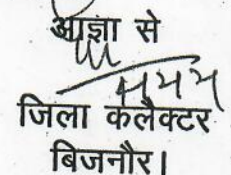 आज्ञा से
जिला कलैक्टर
बिजनौर।